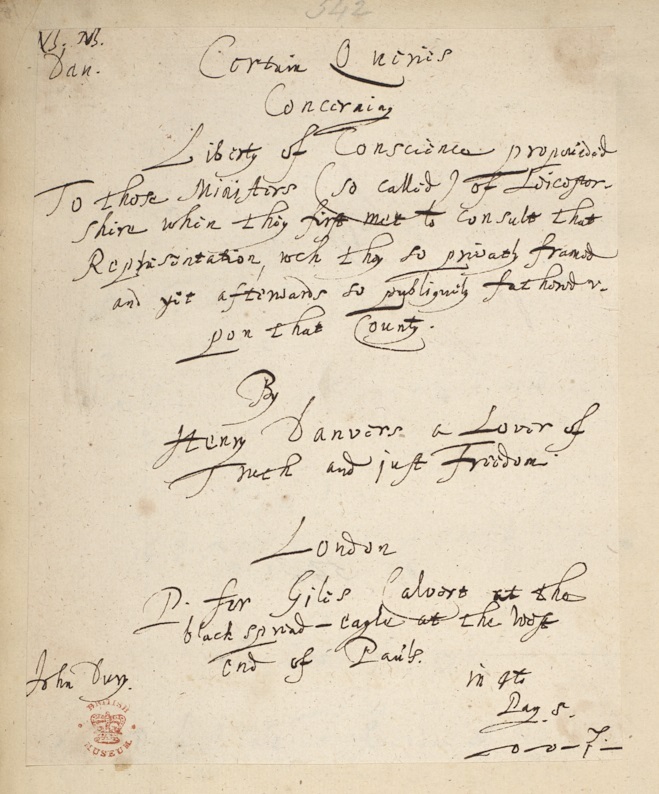 342
Dan.
Certain Queries
Concerning
Liberty of Conscience propounded
To those Ministers (so called) of Leicester-
shire when they first met to consult that
Representation, wch they so privatly framed
and yet afterwards so publiquely fathered v-
pon that County.
By
Henry Danvers a Lover of
Truth and just Freedom.
London
P. for Giles Calvert at the
black spread-eagle at the West
end of Pauls.
John Dury.
in 4to
Pag. 8.
BRITISH
MUSEUM